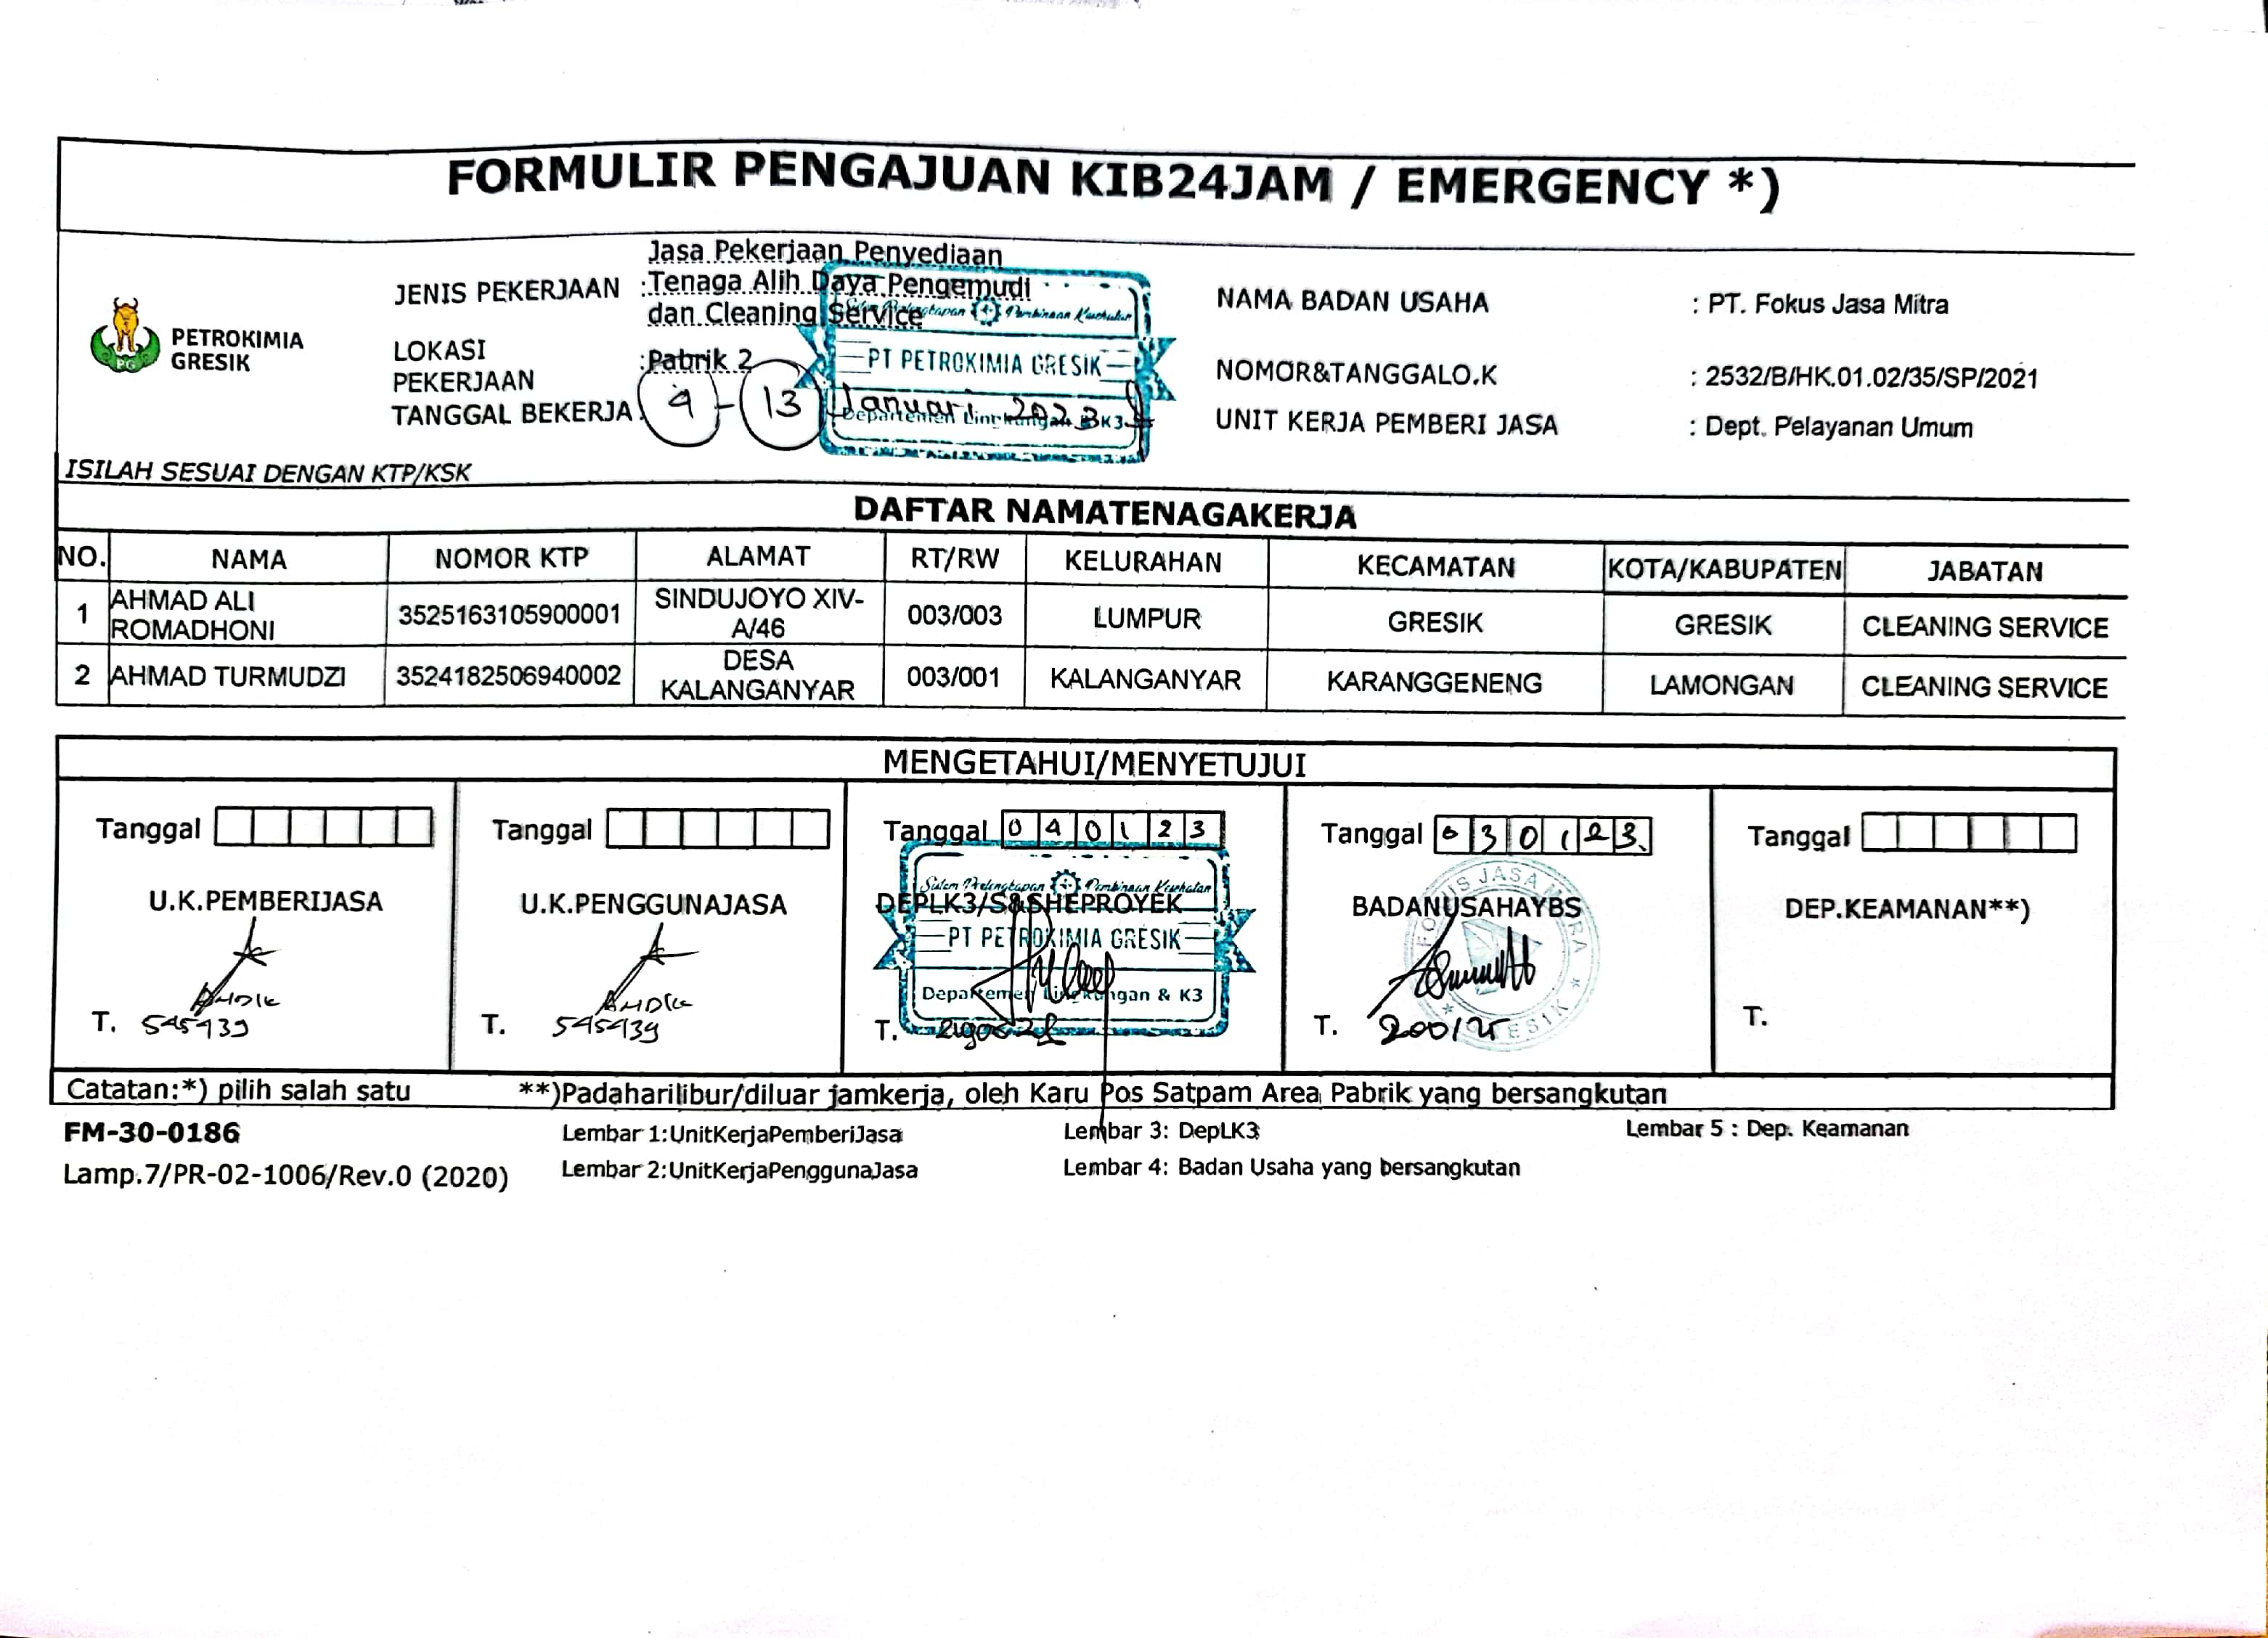 FORMULIR PENGAJUAN KIB24JAM / EMERGENCY *)
PETROKIMIA
GRESIK
JENIS PEKERJAAN :Jasa Pekerjaan Penyediaan
Tenaga Alih Daya Pengemudi
dan Cleaning Service
LOKASI
PEKERJAAN :Pabrik 2
TANGGAL BEKERJA : 9 - 13 Januari 2023
PT PETROKIMIA GRESIK
Departemen Lingkungan & K3
NAMA BADAN USAHA : PT. Fokus Jasa Mitra
NOMOR&TANGGALO.K : 2532/B/HK.01.02/35/SP/2021
UNIT KERJA PEMBERI JASA : Dept. Pelayanan Umum
ISILAH SESUAI DENGAN KTP/KSK
DAFTAR NAMATENAGAKERJA
NO. NAMA NOMOR KTP ALAMAT RT/RW KELURAHAN KECAMATAN KOTA/KABUPATEN JABATAN
1 AHMAD ALI ROMADHONI 3525163105900001 SINDUJOYO XIV-A/46 003/003 LUMPUR GRESIK GRESIK CLEANING SERVICE
2 AHMAD TURMUDZI 3524182506940002 DESA KALANGANYAR 003/001 KALANGANYAR KARANGGENENG LAMONGAN CLEANING SERVICE
MENGETAHUI/MENYETUJUI
Tanggal
U.K.PEMBERIJASA
ANDIK
T. 545439
Tanggal
U.K.PENGGUNAJASA
ANDIK
T. 545439
Tanggal 040123
DEPLK3/S&SHEPROYEK
PT PETROKIMIA GRESIK
Departemen Lingkungan & K3
T.
Tanggal 030123
BADANUSAHAYBS
FOKUS JASA MITRA
GRESIK
T.
Tanggal
DEP.KEAMANAN**)
T.
Catatan:*) pilih salah satu **)Padaharilibur/diluar jamkerja, oleh Karu Pos Satpam Area Pabrik yang bersangkutan
FM-30-0186
Lamp.7/PR-02-1006/Rev.0 (2020)
Lembar 1:UnitKerjaPemberiJasa
Lembar 2:UnitKerjaPenggunaJasa
Lembar 3: DepLK3
Lembar 4: Badan Usaha yang bersangkutan
Lembar 5 : Dep. Keamanan